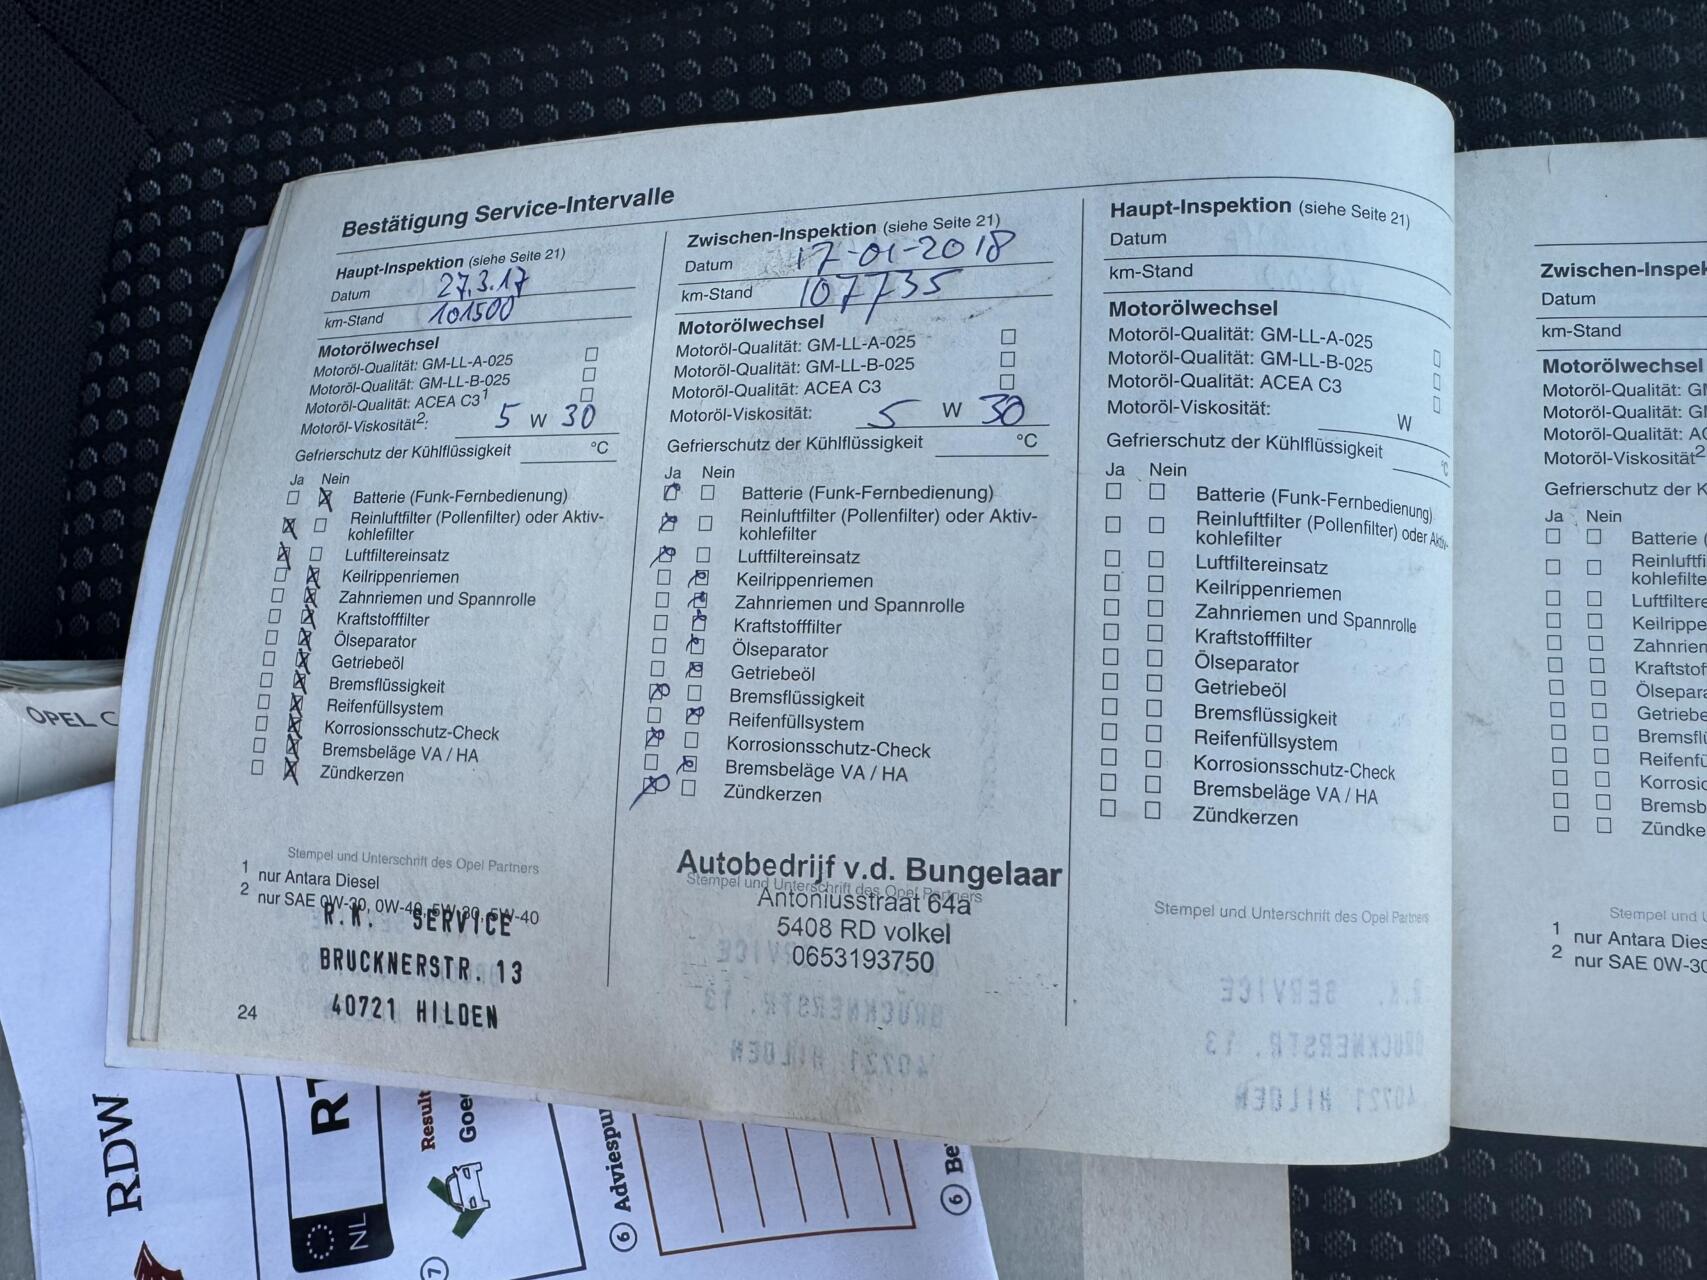 Bestätigung Service-Intervalle
Haupt-Inspektion (siehe Seite 21)
Datum 27.3.17
km-Stand 101500
Motorölwechsel
Motoröl-Qualität: GM-LL-A-025
Motoröl-Qualität: GM-LL-B-025
Motoröl-Qualität: ACEA C3¹
Motoröl-Viskosität²: 5 W 30
Gefrierschutz der Kühlflüssigkeit °C
Ja Nein
Batterie (Funk-Fernbedienung)
Reinluftfilter (Pollenfilter) oder Aktiv-
kohlefilter
Luftfiltereinsatz
Keilrippenriemen
Zahnriemen und Spannrolle
Kraftstofffilter
Ölseparator
Getriebeöl
Bremsflüssigkeit
Reifenfüllsystem
Korrosionsschutz-Check
Bremsbeläge VA / HA
Zündkerzen
Stempel und Unterschrift des Opel Partners
1 nur Antara Diesel
2 nur SAE 0W-30, 0W-40, 5W-30, 5W-40
R.K. SERVICE
BRUCKNERSTR. 13
40721 HILDEN
24
Zwischen-Inspektion (siehe Seite 21)
Datum 17-01-2018
km-Stand 107735
Motorölwechsel
Motoröl-Qualität: GM-LL-A-025
Motoröl-Qualität: GM-LL-B-025
Motoröl-Qualität: ACEA C3
Motoröl-Viskosität: 5 W 30
Gefrierschutz der Kühlflüssigkeit °C
Ja Nein
Batterie (Funk-Fernbedienung)
Reinluftfilter (Pollenfilter) oder Aktiv-
kohlefilter
Luftfiltereinsatz
Keilrippenriemen
Zahnriemen und Spannrolle
Kraftstofffilter
Ölseparator
Getriebeöl
Bremsflüssigkeit
Reifenfüllsystem
Korrosionsschutz-Check
Bremsbeläge VA / HA
Zündkerzen
Autobedrijf v.d. Bungelaar
Stempel und Unterschrift des Opel Partners
Antoniusstraat 64a
5408 RD volkel
0653193750
Haupt-Inspektion (siehe Seite 21)
Datum
km-Stand
Motorölwechsel
Motoröl-Qualität: GM-LL-A-025
Motoröl-Qualität: GM-LL-B-025
Motoröl-Qualität: ACEA C3
Motoröl-Viskosität: W
Gefrierschutz der Kühlflüssigkeit °C
Ja Nein
Batterie (Funk-Fernbedienung)
Reinluftfilter (Pollenfilter) oder Aktiv-
kohlefilter
Luftfiltereinsatz
Keilrippenriemen
Zahnriemen und Spannrolle
Kraftstofffilter
Ölseparator
Getriebeöl
Bremsflüssigkeit
Reifenfüllsystem
Korrosionsschutz-Check
Bremsbeläge VA / HA
Zündkerzen
Stempel und Unterschrift des Opel Partners
Zwischen-Inspek
Datum
km-Stand
Motorölwechsel
Motoröl-Qualität: G
Motoröl-Qualität: G
Motoröl-Qualität: AC
Motoröl-Viskosität²
Gefrierschutz der K
Ja Nein
Batterie (
Reinluftfi
kohlefilte
Luftfiltere
Keilrippe
Zahnrien
Kraftstof
Ölsepara
Getriebe
Bremsflü
Reifenfü
Korrosio
Bremsb
Zündke
Stempel und U
1 nur Antara Dies
2 nur SAE 0W-30
OPEL C
RDW
NL
Result
Goe
7
6 Adviespu
6 Be